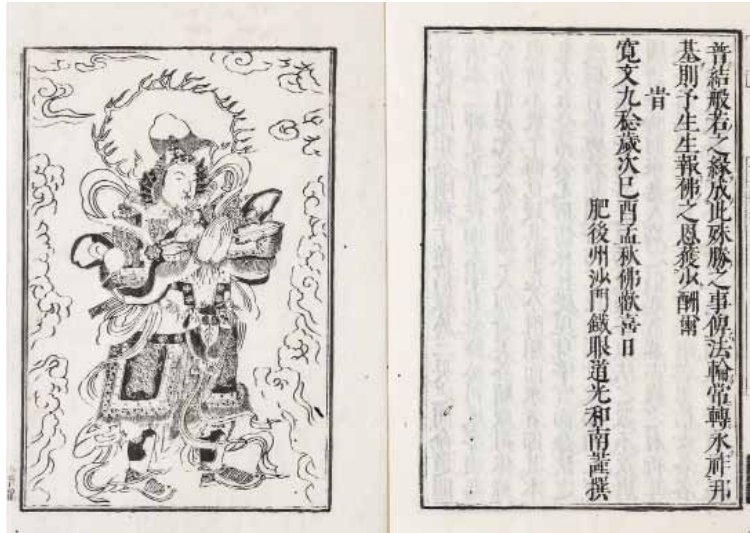 普結般若之緣成此殊勝之事俾法輪常轉永祚邦
基則予生生報佛之恩蔑少酬爾
旹
寬文九穐歲次己酉孟秋佛歡喜日
肥後州沙門鐵眼道光和南謹撰